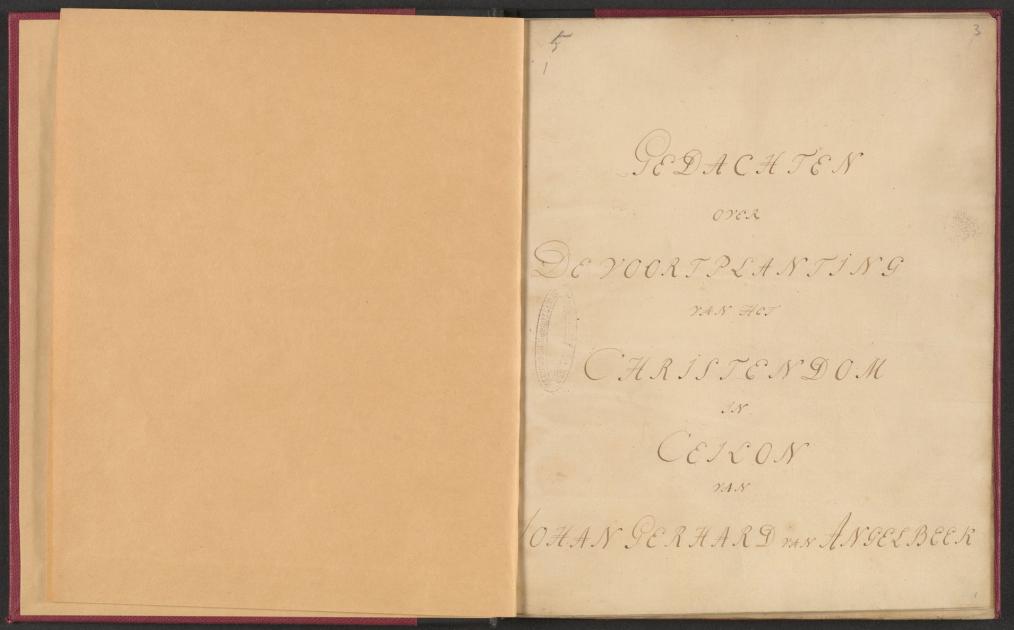 5
1
3
GEDACHTEN
OVER
DE VOORTPLANTING
VAN HET
CHRISTENDOM
IN
CEILON
VAN
JOHAN GERHARD VAN ANGELBEEK